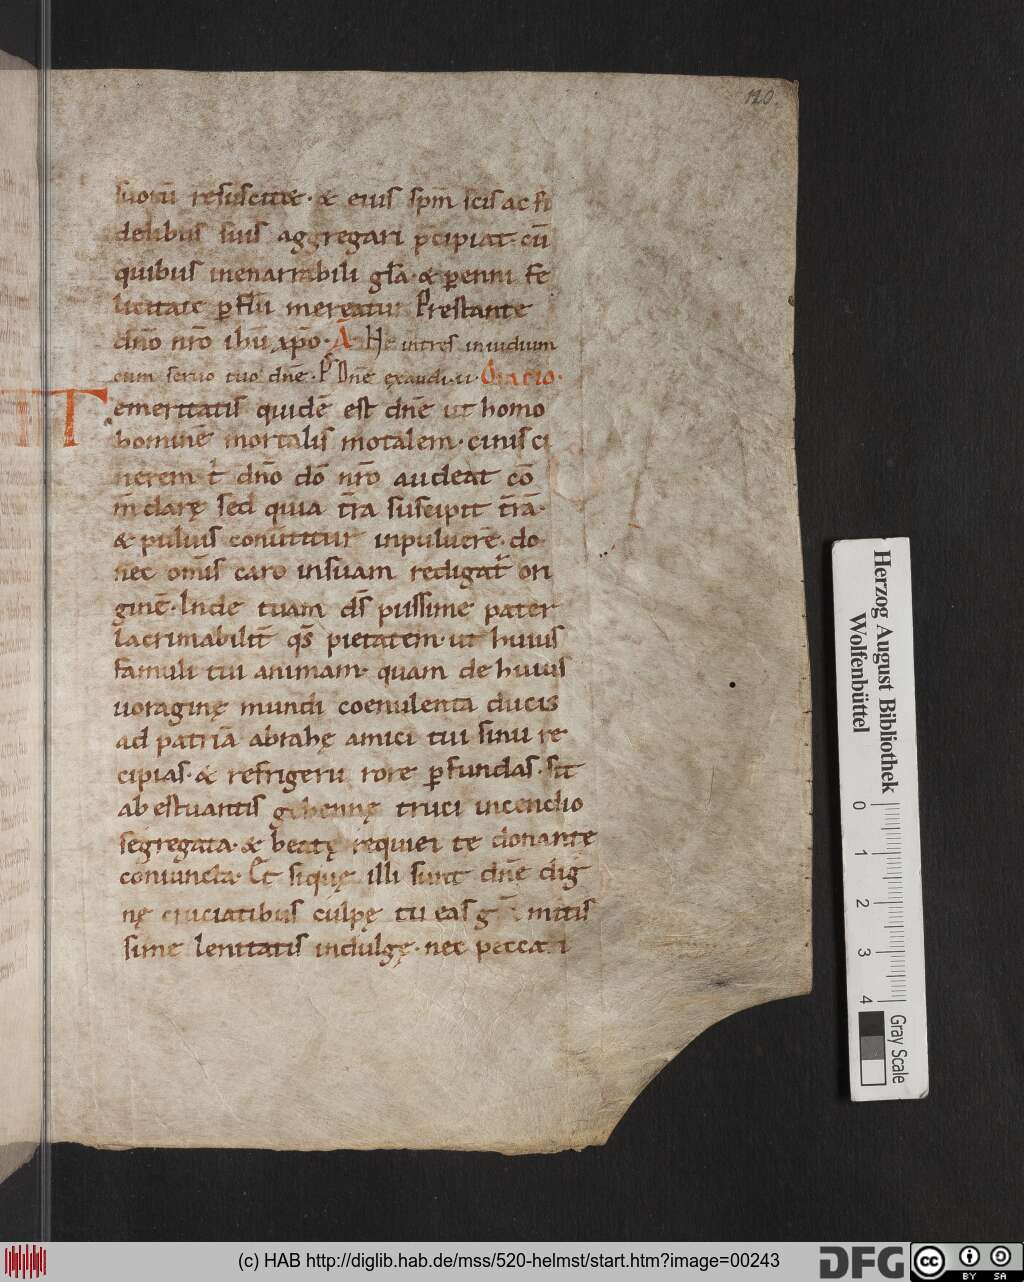 120.
suorū resuscitet· & eius spm̄ scis ac fi
delibus suis aggregari p̄cipiat· cū
quibus inenarrabili gla· & p̱enni fe
licitate p̱frui mereatur Prestante
dn̄o nr̄o ihū xp̄o· A Ne intres in iudicium
cum seruo tuo dn̄e· Dn̄e exaudi· Oracio·
Temeritatis quidē est dn̄e ut homo
hominē mortalis motalem· cinis ci
nerem t dn̄o dō nr̄o audeat cō
m̄darę sed quia t̄ra suscipit t̄rā·
& puluis conu̅titur inpuluerē· do
nec om̄is caro insuam redigat̄ ori
ginē· Inde tuam ds̄ piissime pater
lacrimabilit̄ qs̄ pietatem· ut huius
famuli tui animam· quam de huius
uoraginę mundi coenulenta ducis
ad patriā abrahę amici tui sinu re
cipias· & refrigerii rore p̱fundas· sit
ab estuantis gehennę truci incendio
segregata· & beatę requiei te donante
coniuncta· Et siquę illi sunt dn̄e dig
nę cruciatibus culpę tu eas mitis
sime lenitatis indulgę· nec peccati
Herzog August Bibliothek
Wolfenbüttel
0 1 2 3 4
Gray Scale
(c) HAB http://diglib.hab.de/mss/520-helmst/start.htm?image=00243
DFG
cc BY SA